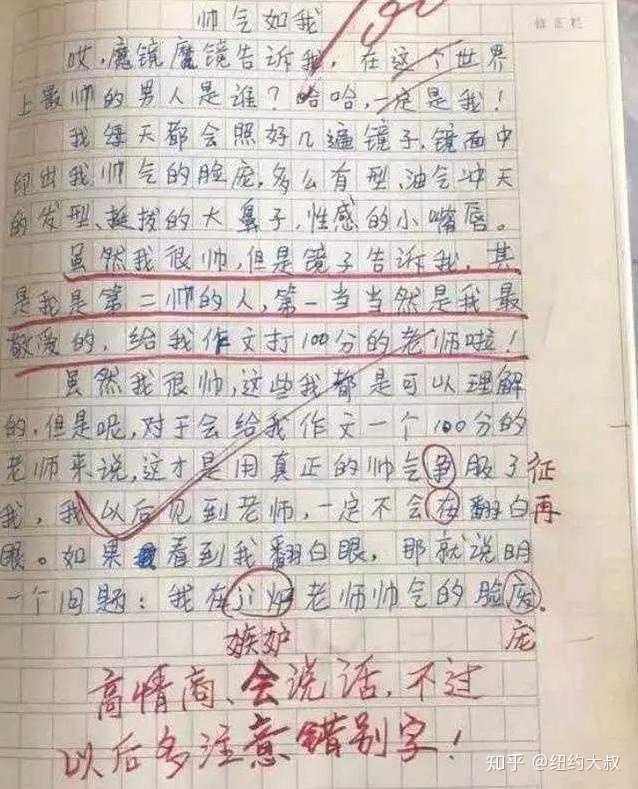 帅气如我
修正栏
哎,魔镜魔镜告诉我,在这个世界
上最帅的男人是谁?哈哈,一定是我!
我每天都会照好几遍镜子,镜面中
印出我帅气的脸庞,多么有型,油气冲天
的发型、挺拔的大鼻子,性感的小嘴唇。
虽然我很帅,但是镜子告诉我,其
是我是第二帅的人,第一当当然是我最
敬爱的,给我作文打100分的老师啦!
虽然我很帅,这些我都是可以理解
的,但是呢,对于会给我作文一个100分的
老师来说,这才是用真正的帅气争服了 征
我,我以后见到老师,一定不会在翻白 再
眼。如果看到我翻白眼,那就说明
一个问题:我在老师帅气的脸
嫉妒 庞
高情商、会说话,不过
以后多注意错别字!
知乎 @纽约大叔